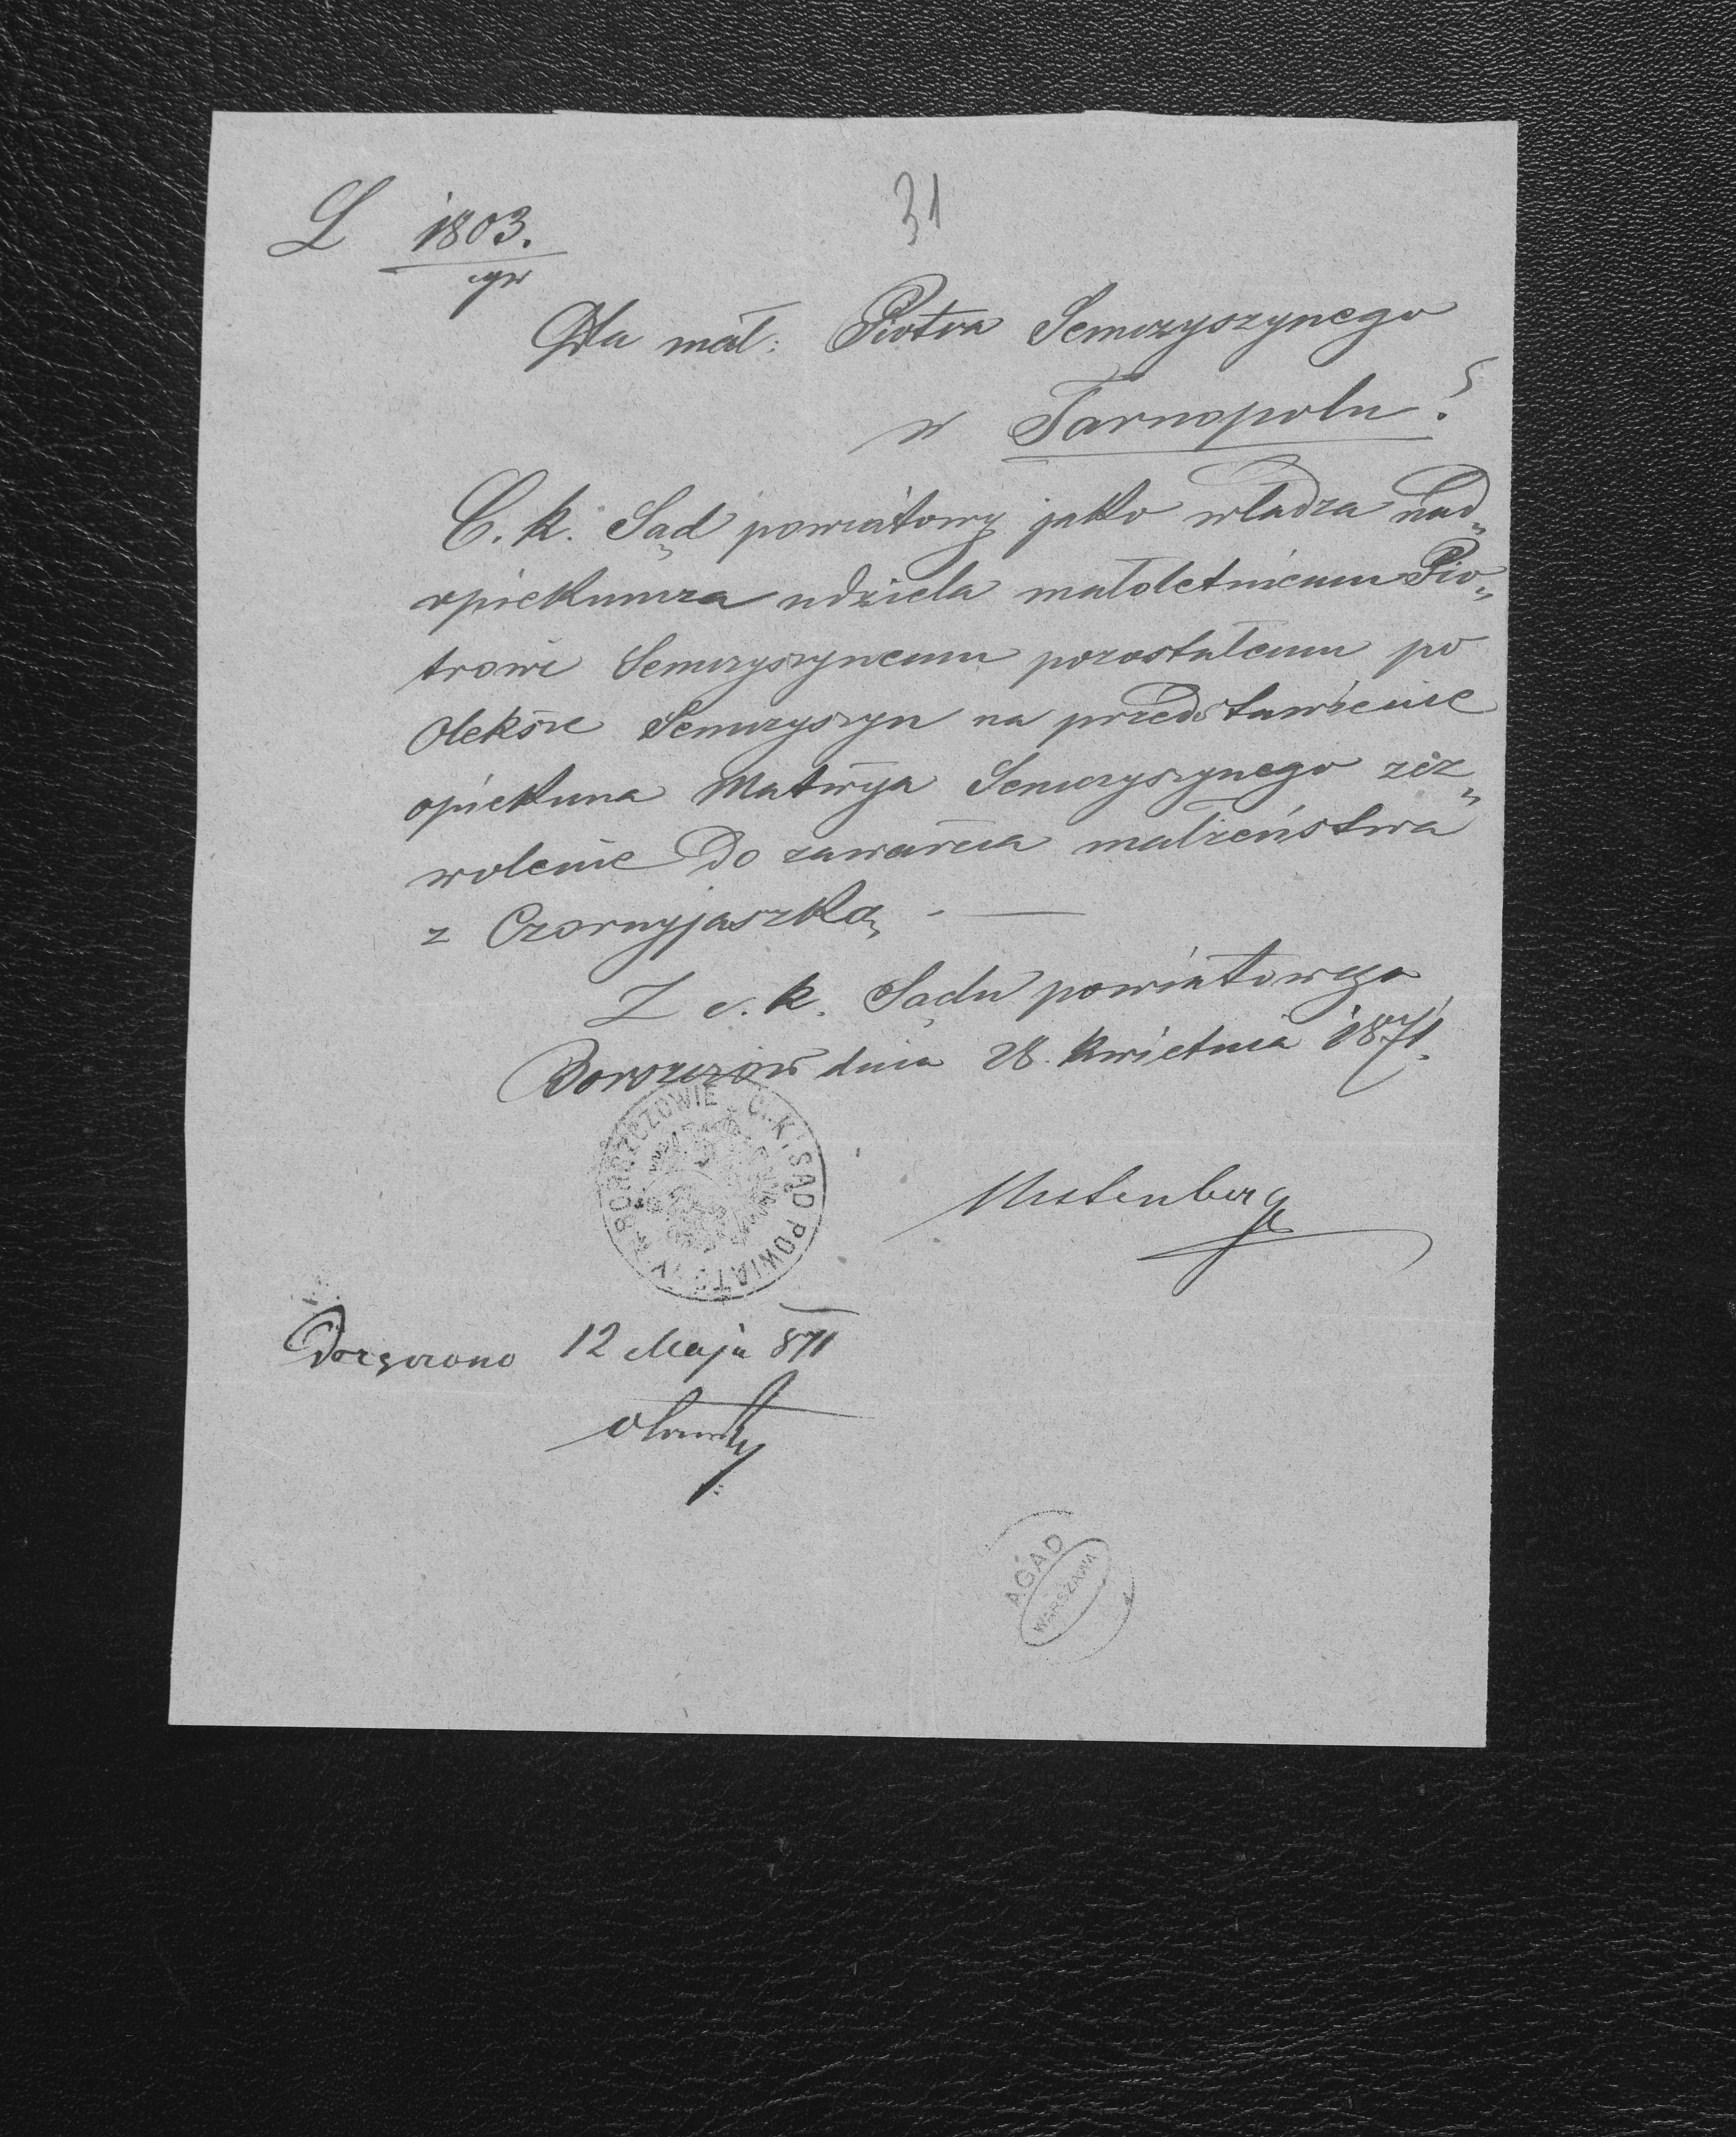 31
L 1803.
Dla mał: Piotra Semczyszynego
w Tarnopolu
C. k. Sąd powiatowy jako władza nad„
opiekuńcza udziela małoletniemu Pio„
trowi Semczyszynemu pozostałemu po
Oleksie Semczyszyn na przedstawienie
opiekuna Matwija Semczyszynego zez„
wolenie do zawarcia małżeństwa
z Czornyjaszką. —
Z c. k. Sądu powiatowego
Borszczów dnia 28. kwietnia 1871.
C. K. SĄD POWIATOWY W BORSZCZOWIE
Doręczono 12 Maja 871
AGAD
WARSZAWA